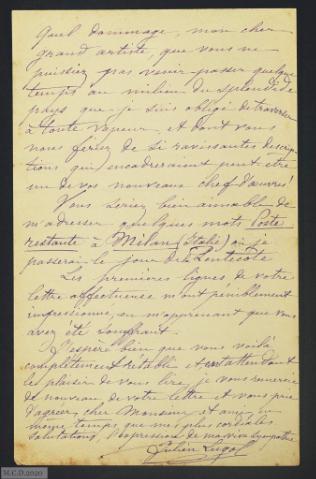 Quel dommage, mon cher
grand artiste, que vous ne
puissiez pas venir passer quelque
temps au milieu du splendide
pays que je suis obligé de traverser
à toute vapeur, et dont vous
nous feriez de si ravissantes descrip-
tions qui encadreraient peut etre
un de vos nouveaux chef d'œuvres!
Vous seriez bien aimable de
m'adresser quelques mots Poste
restante à Milan (Italie) où je
passerai le jour de la Pentecôte
Les premières lignes de votre
lettre affectueuse m'ont péniblement
impressionné, en m'apprenant que vous
avez été souffrant.
J'espère bien que vous voilà
complètement rétabli et en attendant
le plaisir de vous lire, je vous remercie
de nouveau de votre lettre et vous prie
d'agréer, cher Monsieur et ami, en
même temps que mes plus cordiales
salutations, l'expression de ma vive sympathie
Julien Lugol
M.C.D. 2020